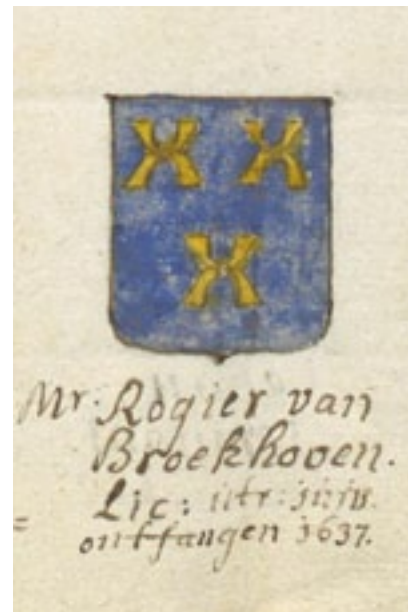 Mr. Rogier van
Broekhoven.
Lic: utr: juris
ontfangen 1637.